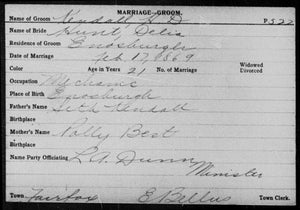 MARRIAGE-GROOM
Name of Groom Kendall, S D P522
Name of Bride Hunt, Delia
Residence of Groom Enosburgh
Date of Marriage Feb 17, 1869
Color Age in Years 21 No. of Marriage Widowed Divorced
Occupation Mechanic
Place of Birth Enosburgh
Father's Name Seth Kendall
Birthplace
Mother's Name Polly Best
Birthplace
Name Party Officiating L. A. Dunn
Minister
Town Fairfax E Bellus Town Clerk.